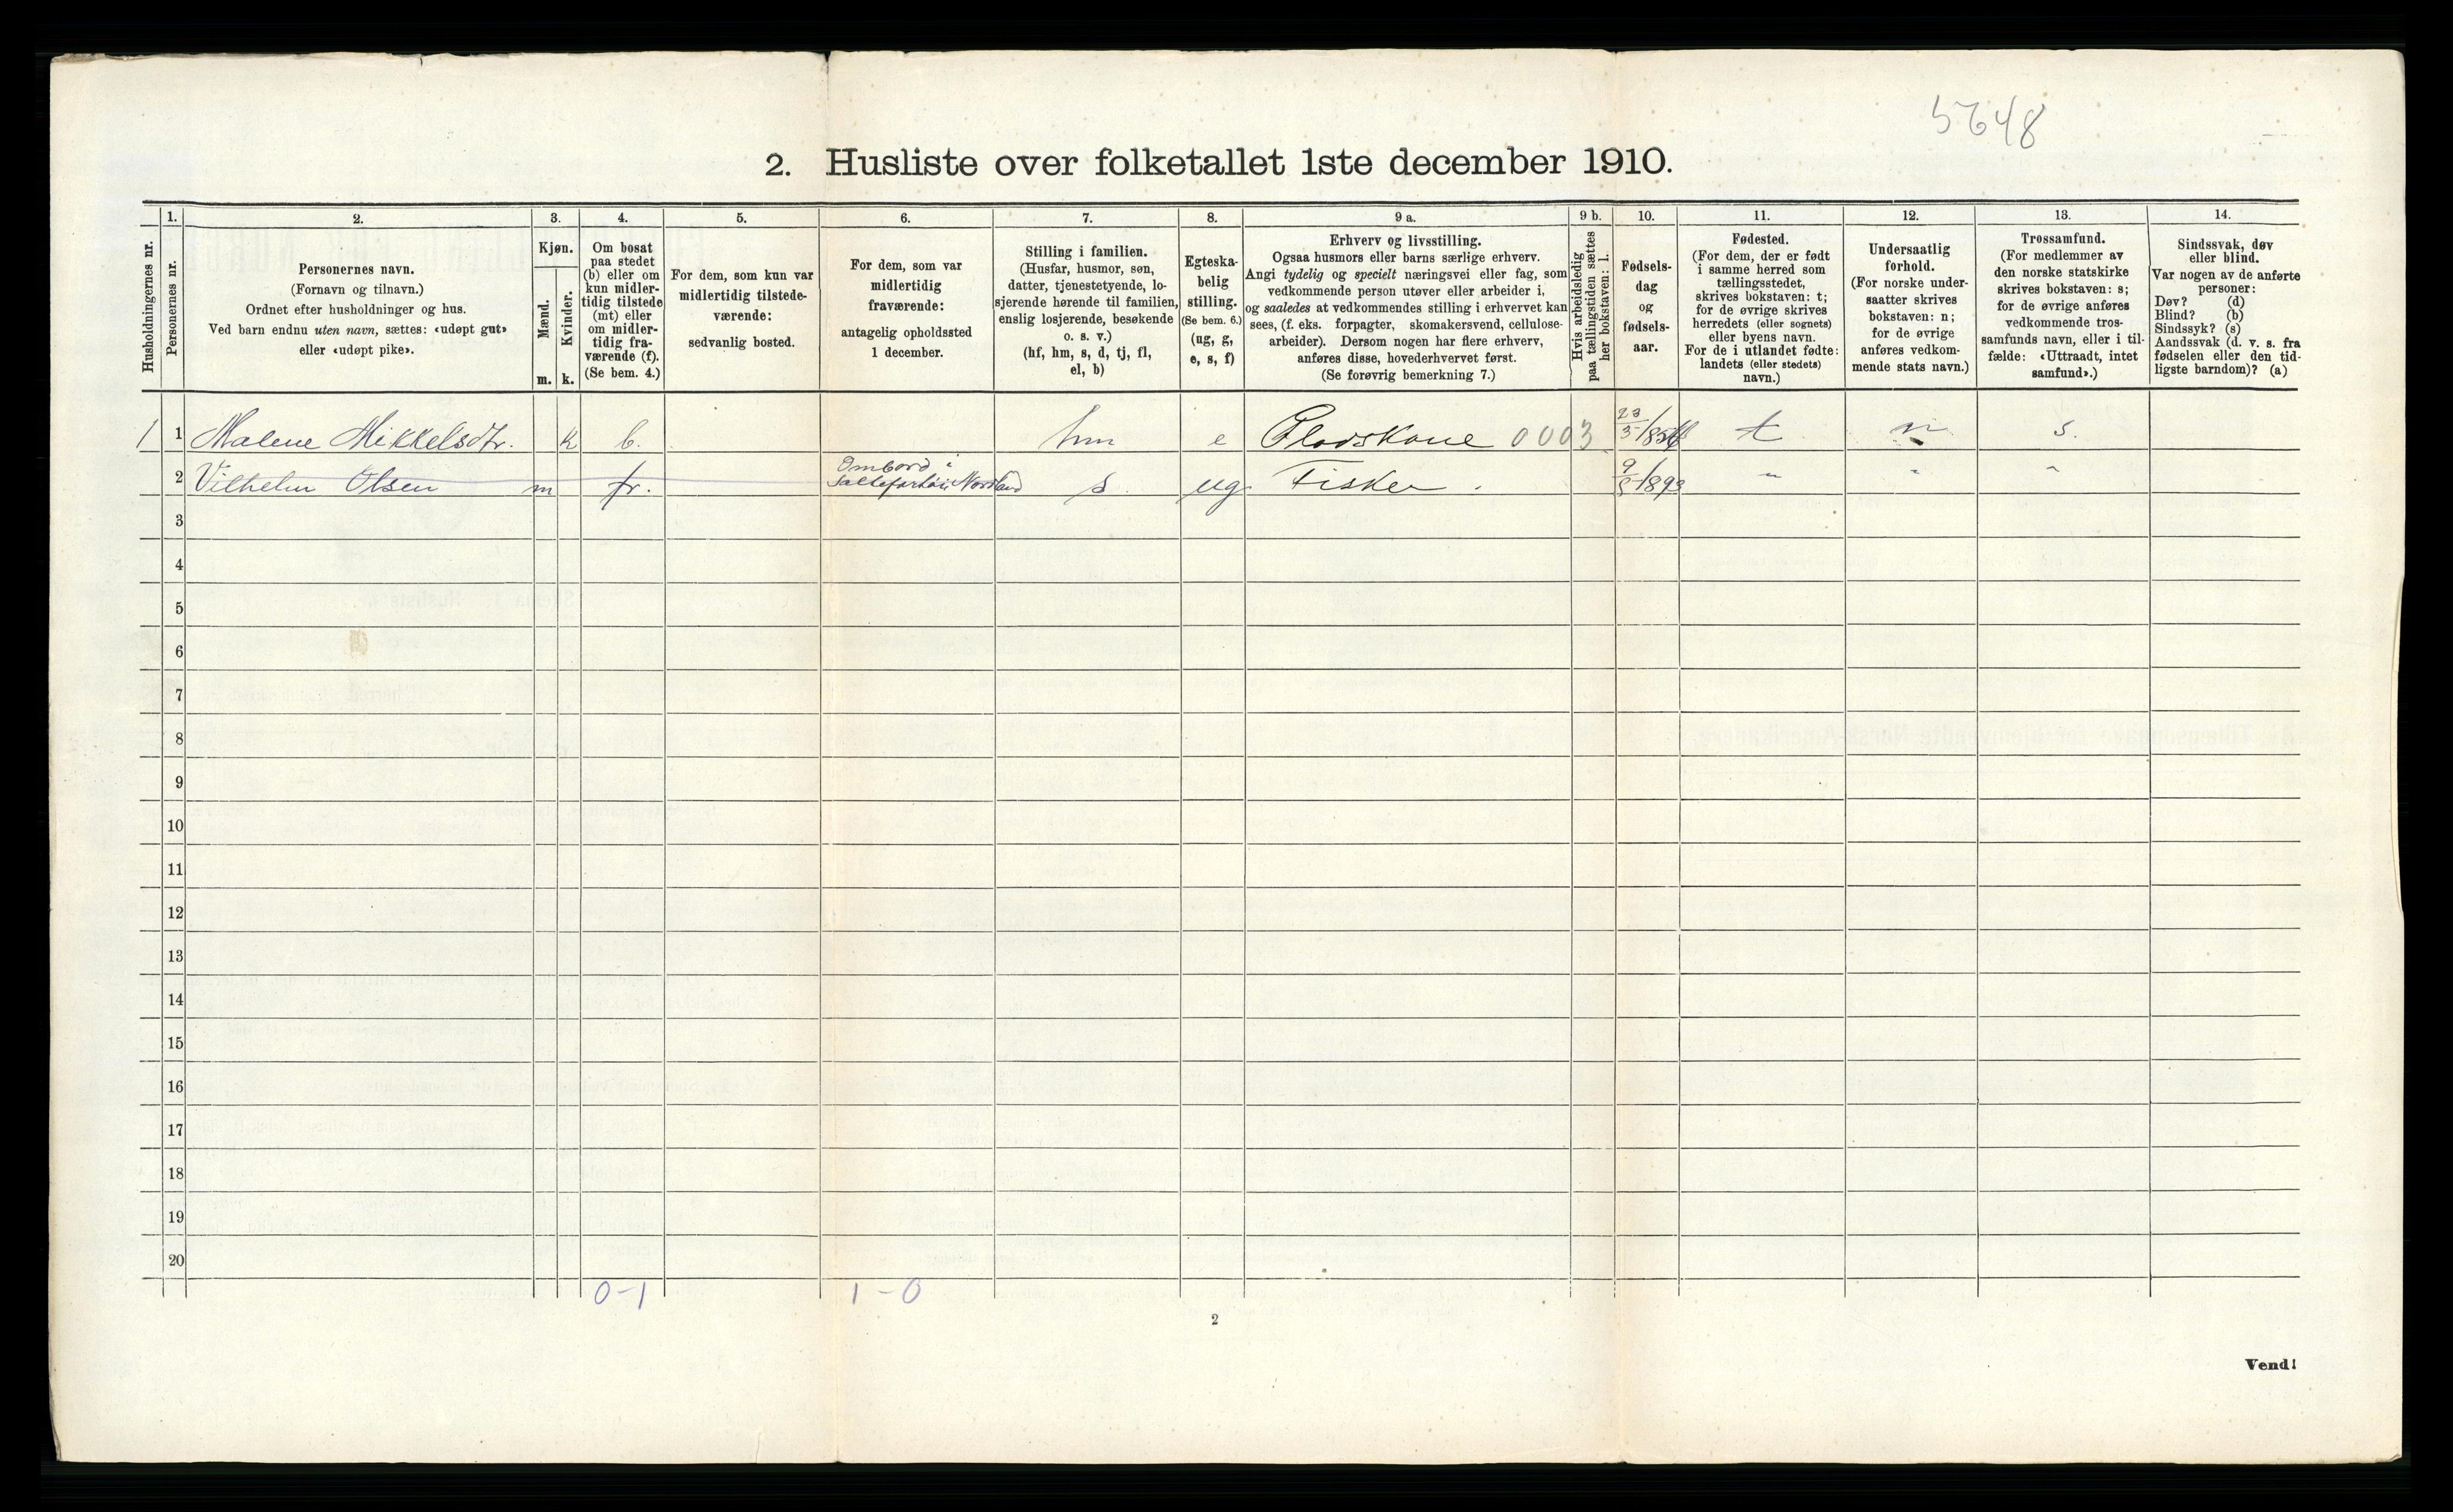 5648
2. Husliste over folketallet 1ste december 1910.
Husholdningernes nr.
1.
Personernes nr.
2.
Personernes navn.
(Fornavn og tilnavn.)
Ordnet efter husholdninger og hus.
Ved barn endnu uten navn, sættes: «udøpt gut»
eller «udøpt pike».
3.
Kjøn.
Mænd.
Kvinder.
m. k.
4.
Om bosat
paa stedet
(b) eller om
kun midler-
tidig tilstede
(mt) eller
om midler-
tidig fra-
værende (f).
(Se bem. 4.)
5.
For dem, som kun var
midlertidig tilstede-
værende:
sedvanlig bosted.
6.
For dem, som var
midlertidig
fraværende:
antagelig opholdssted
1 december.
7.
Stilling i familien.
(Husfar, husmor, søn,
datter, tjenestetyende, lo-
sjerende hørende til familien,
enslig losjerende, besøkende
o. s. v.)
(hf, hm, s, d, tj, fl,
el, b)
8.
Egteska-
belig
stilling.
(Se bem. 6.)
(ug, g,
e, s, f)
9 a.
Erhverv og livsstilling.
Ogsaa husmors eller barns særlige erhverv.
Angi tydelig og specielt næringsvei eller fag, som
vedkommende person utøver eller arbeider i,
og saaledes at vedkommendes stilling i erhvervet kan
sees, (f. eks. forpagter, skomakersvend, cellulose-
arbeider). Dersom nogen har flere erhverv,
anføres disse, hovederhvervet først.
(Se forøvrig bemerkning 7.)
9 b.
Hvis arbeidsledig
paa tællingstiden sættes
her bokstaven: l.
10.
Fødsels-
dag
og
fødsels-
aar.
11.
Fødested.
(For dem, der er født
i samme herred som
tællingsstedet,
skrives bokstaven: t;
for de øvrige skrives
herredets (eller sognets)
eller byens navn.
For de i utlandet fødte:
landets (eller stedets)
navn.)
12.
Undersaatlig
forhold.
(For norske under-
saatter skrives
bokstaven: n;
for de øvrige
anføres vedkom-
mende stats navn.)
13.
Trossamfund.
(For medlemmer av
den norske statskirke
skrives bokstaven: s;
for de øvrige anføres
vedkommende tros-
samfunds navn, eller i til-
fælde: «Uttraadt, intet
samfund».)
14.
Sindssvak, døv
eller blind.
Var nogen av de anførte
personer:
Døv? (d)
Blind? (b)
Sindssyk? (s)
Aandssvak (d. v. s. fra
fødselen eller den tid-
ligste barndom)? (a)
1 1 Malene Mikkelsdtr. k b. hm e 0003 23/3 t n s.
2 Vilhelm Olsen m fr. Ombord i Nordland s ug Fisker 1893 " " "
3
4
5
6
7
8
9
10
11
12
13
14
15
16
17
18
19
20
0-1 1-0
2
Vend!